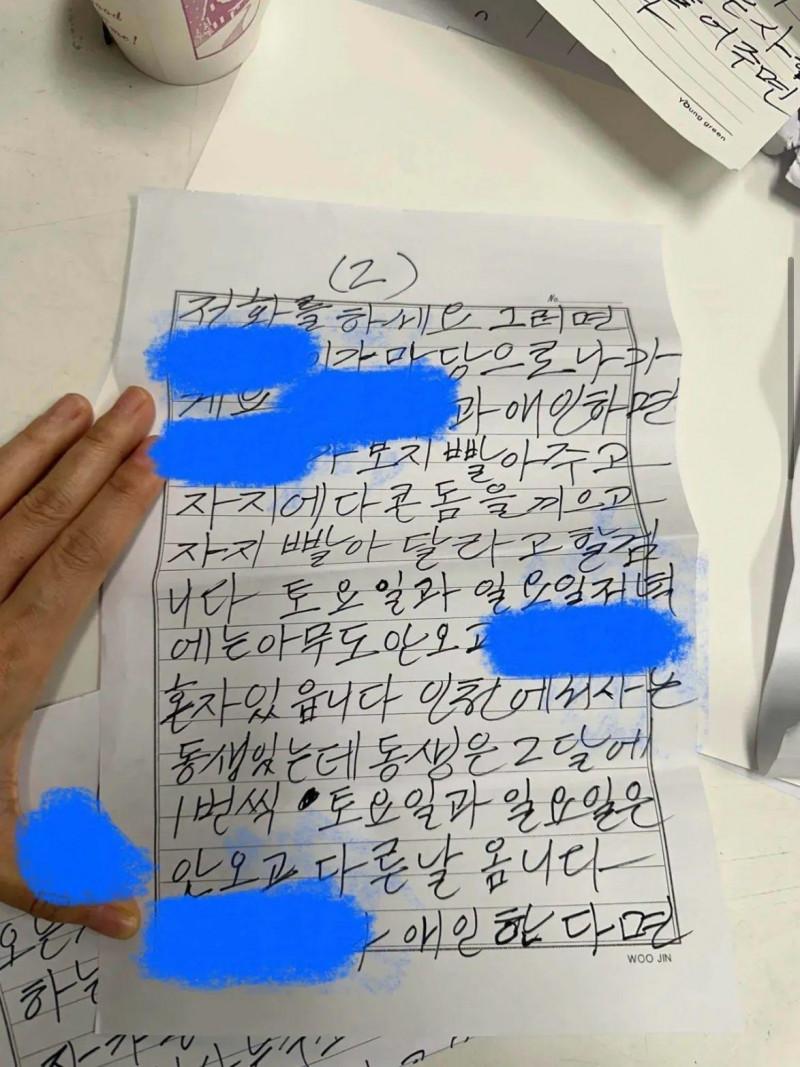 d
me!
어주면
young green
(2)
No.
전화를 하세요 그러면
가 마당으로 나가
게요
과 애인하면
보지 빨아주고
자지에다 콘돔을 끼으고
자지 빨아 달라고 할겁
니다 토요일과 일요일저녁
에는아무도안오고
혼자있읍니다 인천에서사는
동생있는데 동생은 2달에
1번씩 토요일과 일요일은
안오고 다른날 옵니다
애인한다면
WOO JIN